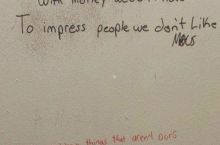 with money we don't have
To impress people we don't Like
things that aren't ours